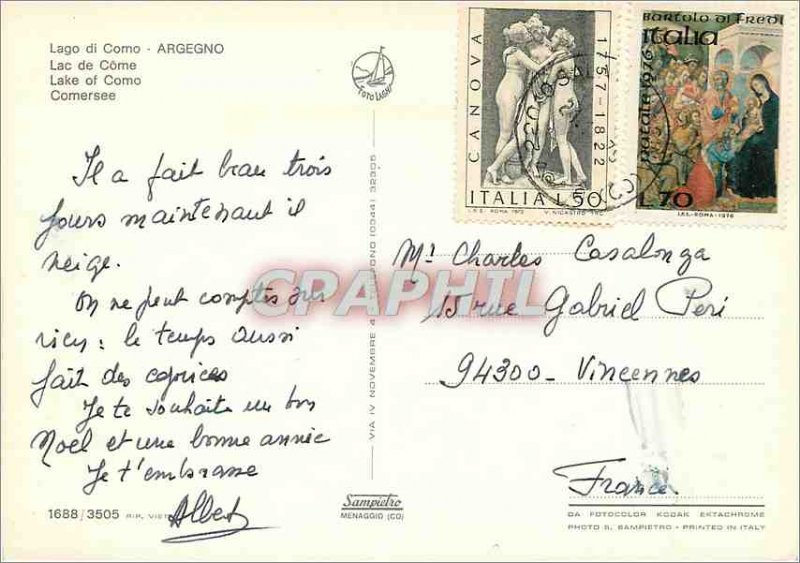 Lago di Como - ARGEGNO
Lac de Côme
Lake of Como
Comersee
FOTO LAGHI
CANOVA
1757-1822
ITALIA L.50
I.P.S. ROMA 1972 V. NICASTRO INC.
Bartolo di Fredi
italia
natale 1976
L.70
I.P.S. - ROMA - 1976
Il a fait beau trois
jours maintenant il
neige.
On ne peut comptes sur
rien : le temps aussi
fait des caprices
Je te souhaite un bon
Noel et une bonne année
Je t'embrasse
Albert
1688/3505
VIA IV NOVEMBRE 4 TELEFONO (0344) 32305
Sampietro
MENAGGIO (CO)
CPAPHIL
Mr Charles Casalonga
15 rue Gabriel Peri
94300 - Vincennes
France
DA FOTOCOLOR KODAK EKTACHROME
PHOTO S. SAMPIETRO - PRINTED IN ITALY